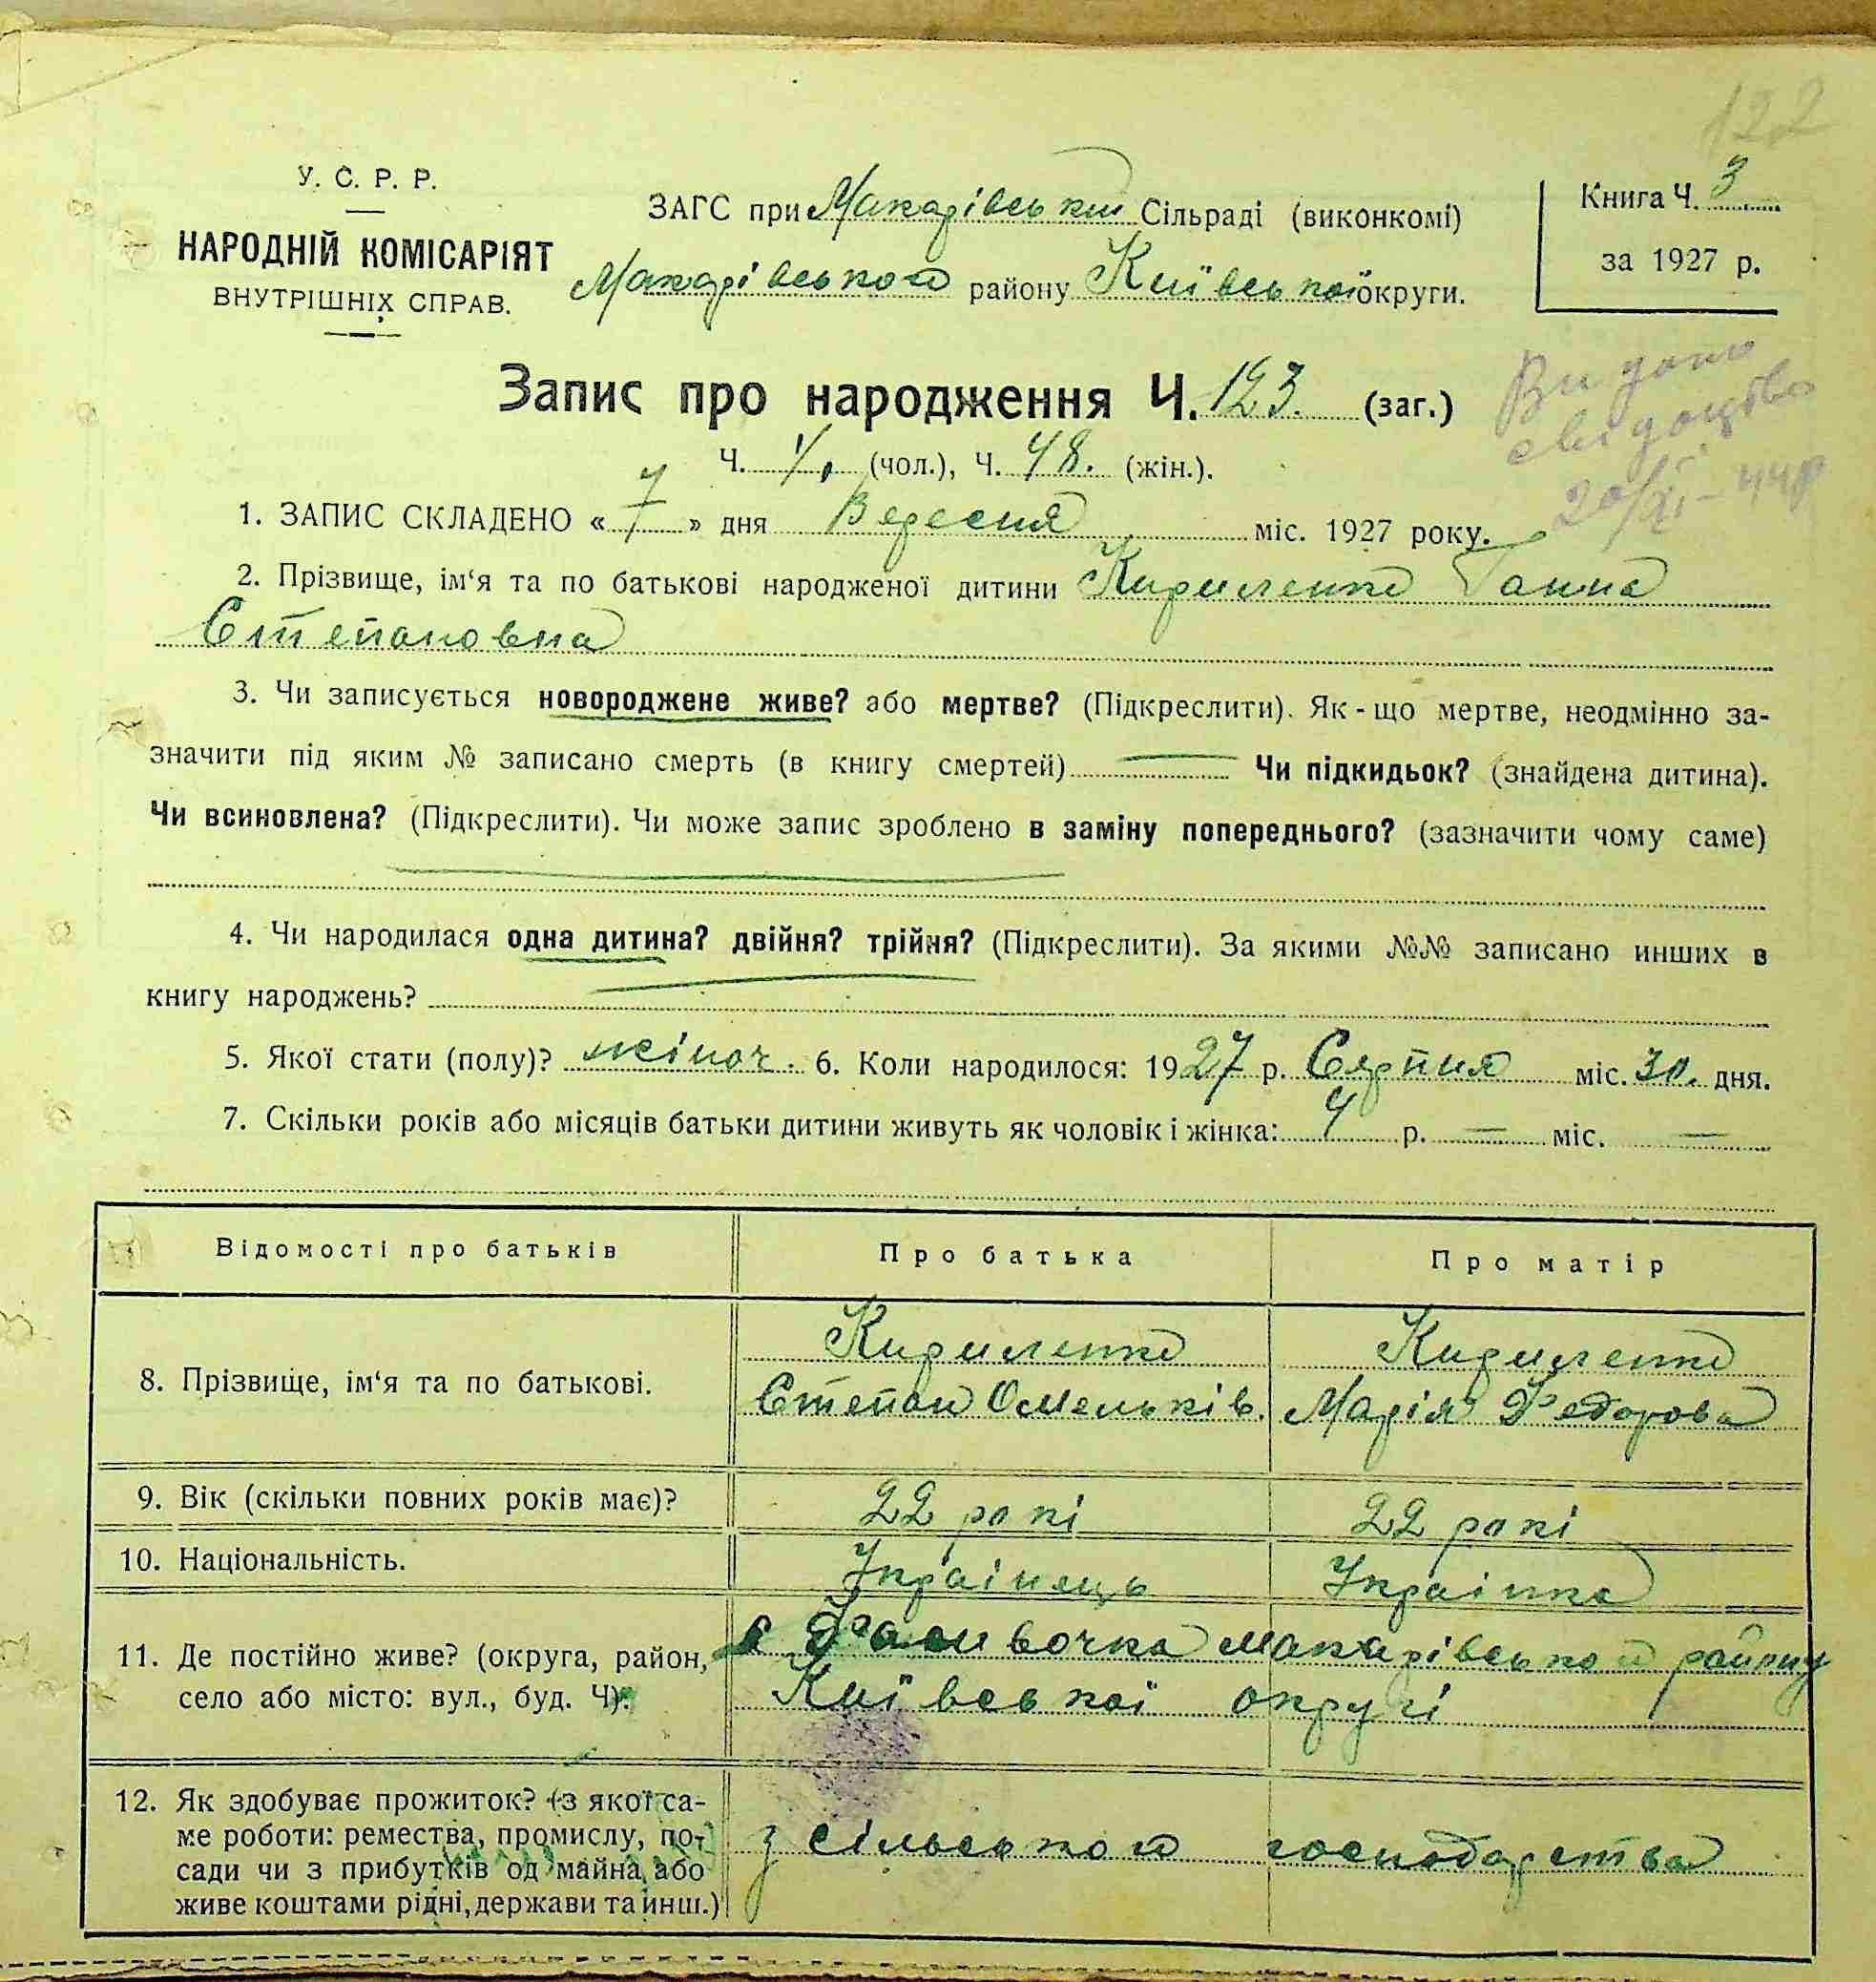 122
У. С. Р. Р.
НАРОДНІЙ КОМІСАРІЯТ
ВНУТРІШНІХ СПРАВ.
ЗАГС при Макарівський Сільраді (виконкомі)
Макарівського району Київської округи.
Книга Ч. 3
за 1927 р.
Запис про народження Ч. 123. (заг.)
Видано
свідоцтво
20/XI-44р
Ч. (чол.), Ч. 48. (жін.).
1. ЗАПИС СКЛАДЕНО « 7 » дня Вересня міс. 1927 року.
2. Прізвище, ім'я та по батькові народженої дитини Кириленко Ганна
Степановна
3. Чи записується новороджене живе? або мертве? (Підкреслити). Як-що мертве, неодмінно за-
значити під яким № записано смерть (в книгу смертей) Чи підкидьок? (знайдена дитина).
Чи всиновлена? (Підкреслити). Чи може запис зроблено в заміну попереднього? (зазначити чому саме)
4. Чи народилася одна дитина? двійня? трійня? (Підкреслити). За якими №№ записано инших в
книгу народжень?
5. Якої стати (полу)? жіноч. 6. Коли народилося: 1927 р. Серпня міс. 30. дня.
7. Скільки років або місяців батьки дитини живуть як чоловік і жінка: 4 р. — міс. —
Відомості про батьків Про батька Про матір
8. Прізвище, ім'я та по батькові.
Кириленко Кириленко
Степан Омельків. Марія Федорова
9. Вік (скільки повних років має)? 22 рокі 22 рокі
10. Національність. Українець Українка
11. Де постійно живе? (округа, район,
село або місто: вул., буд. Ч).
с Фасивочка Макарівського району
Київської округі
12. Як здобуває прожиток? (з якої са-
ме роботи: ремества, промислу, по-
сади чи з прибутків од майна, або
живе коштами рідні, держави та инш.)
з сільського господарства